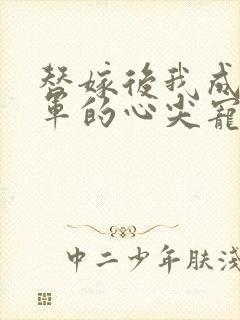 替嫁後我成
軍的心尖寵
中二少年肤淺